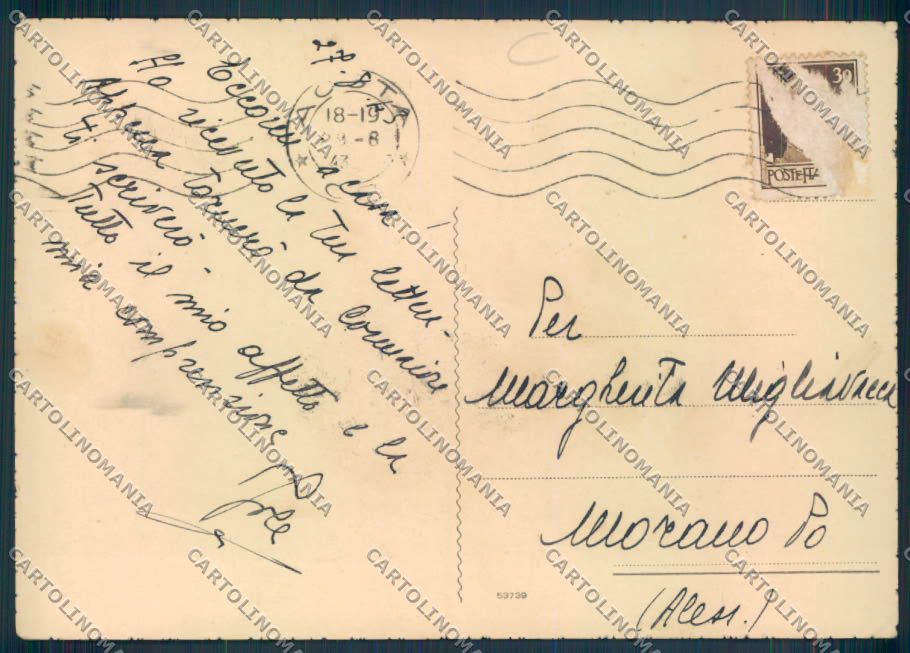 27.8
Eccomi
Ho ricevuto la tua lettera.
Appena tornerò da
ti scriverò.
Tutto il mio affetto e la
mia comprensione
18-19
-8
43
30
POSTE ITA
Per
Margherita Migliavacca
Morano Po
(Aless.)
53739
CARTOLINOMANIA